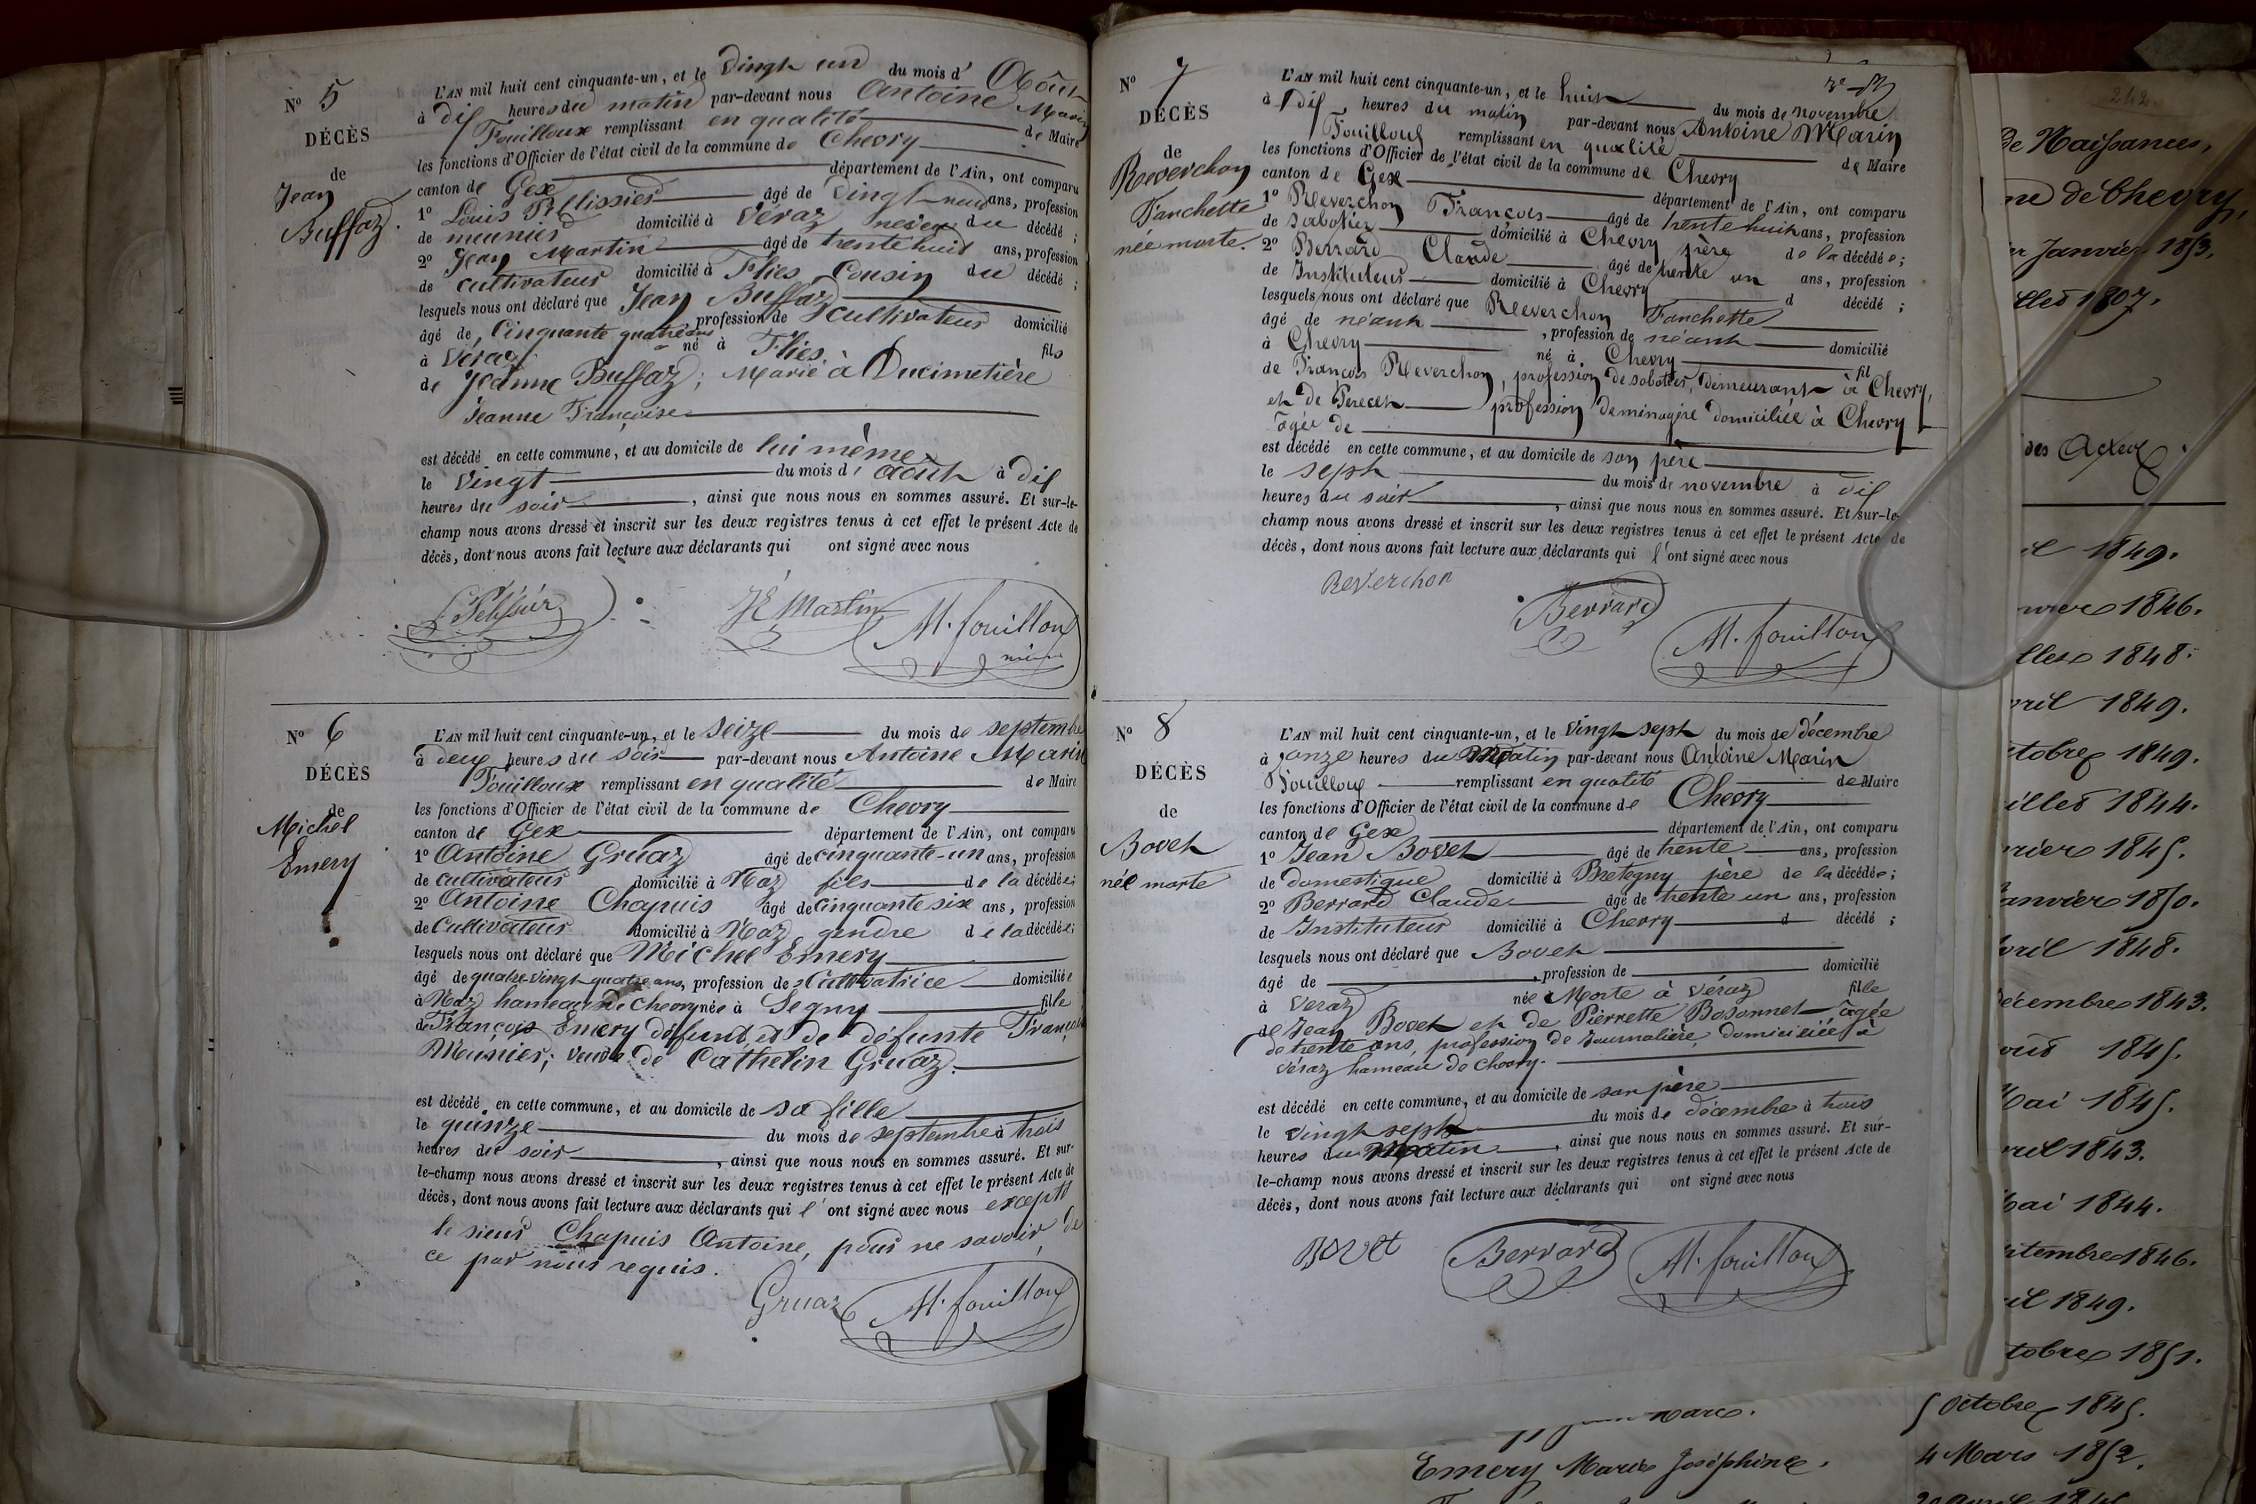 N° 5
DÉCÈS
de
Jean
Buffaz.
L'AN mil huit cent cinquante-un, et le Vingt un du mois d' Août
à dix heures du matin par-devant nous Antoine Marin
Fouilloux remplissant en qualité de Maire
les fonctions d'Officier de l'état civil de la commune de Chevry
canton de Gex département de l'Ain, ont comparu
1° Louis Pellissier âgé de Vingt-neuf ans, profession
de meunier domicilié à Véraz neveu du décédé ;
2° Jean Martin âgé de trente huit ans, profession
de cultivateur domicilié à Flies Cousin du décédé ;
lesquels nous ont déclaré que Jean Buffaz
âgé de, Cinquante quatre ans profession de cultivateur domicilié
à Véraz né à Flies fils
de Jeanne Buffaz ; Marié à Ducimetière
Jeanne Françoise
est décédé en cette commune, et au domicile de lui même
le Vingt du mois d' août à dix
heures du soir , ainsi que nous nous en sommes assuré. Et sur-le-
champ nous avons dressé et inscrit sur les deux registres tenus à cet effet le présent Acte de
décès, dont nous avons fait lecture aux déclarants qui ont signé avec nous
Martin M. fouilloux
N° 6
DÉCÈS
de
Michel
Emery
L'AN mil huit cent cinquante-un, et le seize du mois de septembre
à deux heures du soir par-devant nous Antoine Marin
Fouilloux remplissant en qualité de Maire
les fonctions d'Officier de l'état civil de la commune de Chevry
canton de Gex département de l'Ain, ont comparu
1° Antoine Gruaz âgé de cinquante-un ans, profession
de cultivateur domicilié à Naz fils de la décédée ;
2° Antoine Chapuis âgé de cinquante six ans, profession
de Cultivateur domicilié à Naz gendre de la décédée ;
lesquels nous ont déclaré que Michel Emery
âgé de quatre-vingt-quatre ans, profession de Cultivatrice domiciliée
à Naz hameau de Chevry née à Segny fille
de François Emery défunt, et de défunte
Meunier ; veuve de Cathelin Gruaz.
est décédé en cette commune, et au domicile de sa fille
le quinze du mois de septembre à trois
heures du soir , ainsi que nous nous en sommes assuré. Et sur-
le-champ nous avons dressé et inscrit sur les deux registres tenus à cet effet le présent Acte de
décès, dont nous avons fait lecture aux déclarants qui l'ont signé avec nous excepté
le sieur Chapuis Antoine, pour ne savoir de
ce par nous requis.
Gruaz M. fouilloux
N° 7
DÉCÈS
de
Reverchon
Fanchette
née morte.
L'AN mil huit cent cinquante-un, et le huit du mois de novembre
à dix heures du matin par-devant nous Antoine Marin
Fouilloux remplissant en qualité de Maire
les fonctions d'Officier de l'état civil de la commune de Chevry
canton de Gex département de l'Ain, ont comparu
1° Reverchon François âgé de trente huit ans, profession
de sabotier domicilié à Chevry père de la décédée ;
2° Berrard Claude âgé de trente un ans, profession
de Instituteur domicilié à Chevry d décédé ;
lesquels nous ont déclaré que Reverchon Fanchette
âgé de néant , profession de néant domicilié
à Chevry né à Chevry fil
de François Reverchon, profession de sabotier, demeurant à Chevry,
et de profession de ménagère domiciliée à Chevry
âgée de
est décédé en cette commune, et au domicile de son père
le sept du mois de novembre à dix
heures du soir , ainsi que nous nous en sommes assuré. Et sur-le-
champ nous avons dressé et inscrit sur les deux registres tenus à cet effet le présent Acte de
décès, dont nous avons fait lecture aux déclarants qui l'ont signé avec nous
Reverchon Berrard M. fouilloux
N° 8
DÉCÈS
de
Bovet
née morte
L'AN mil huit cent cinquante-un, et le Vingt sept du mois de décembre
à onze heures du Matin par-devant nous Antoine Marin
Fouilloux remplissant en qualité de Maire
les fonctions d'Officier de l'état civil de la commune de Chevry
canton de Gex département de l'Ain, ont comparu
1° Jean Bovet âgé de trente ans, profession
de domestique domicilié à Pretegny père de la décédée ;
2° Berrard Claude âgé de trente un ans, profession
de Instituteur domicilié à Chevry d décédé ;
lesquels nous ont déclaré que Bovet
âgé de , profession de domicilié
à Veraz née Morte à Véraz fille
de Jean Bovet et de Pierrette Bosonnet âgée
de trente ans, profession de Journalière, domiciliée à
Véraz hameau de Chevry.
est décédé en cette commune, et au domicile de son père
le Vingt sept du mois de décembre à trois
heures du Matin , ainsi que nous nous en sommes assuré. Et sur-
le-champ nous avons dressé et inscrit sur les deux registres tenus à cet effet le présent Acte de
décès, dont nous avons fait lecture aux déclarants qui ont signé avec nous
Bovet Berrard M. fouilloux
242
de Naissances,
de Chevry,
Janvier 1853.
1807.
des Actes
1849.
1846.
1848.
1849.
1849.
1844.
1845.
Janvier 1850.
avril 1848.
décembre 1843.
1845.
Mai 1845.
1843.
Mai 1844.
1846.
1849.
1851.
5 Octobre 1845.
Emery Marie Joséphine. 4 Mars 1852.